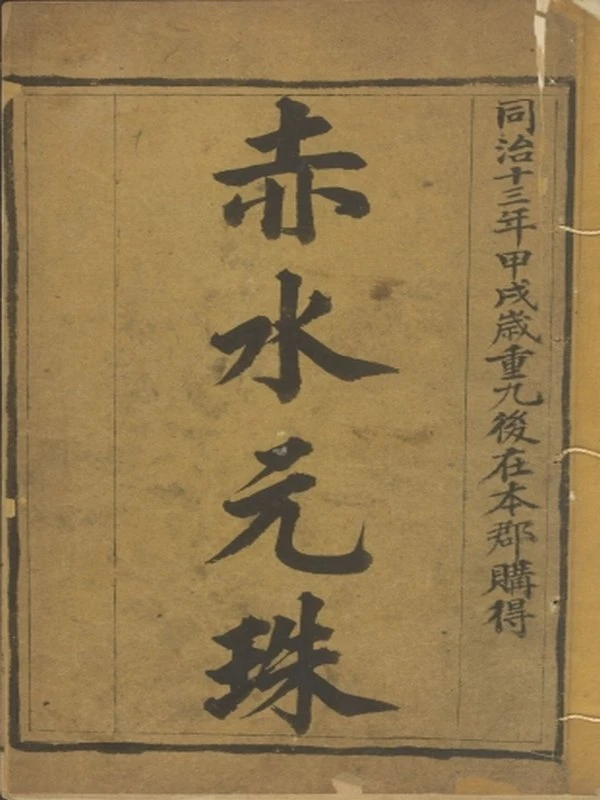 同治十三年甲戌歳重九後在本郡購得
赤水元珠